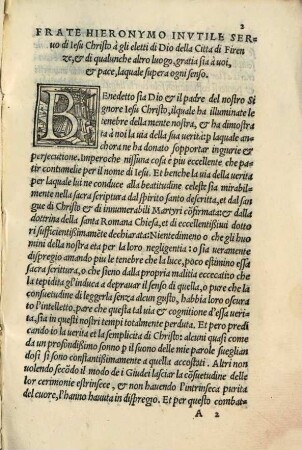 2
FRATE HIERONYMO INVTILE SER
uo di Iesu Christo à gli eletti di Dio della Citta di Firen
ze, & di qualunche altro luogo, gratia sia à uoi,
& pace, laquale supera ogni senso.
BEnedetto sia Dio & il padre del nostro Si
gnore Iesu Christo, ilquale ha illuminate le
tenebre della mente nostra, & ha dimostra
ta à noi la uia della sua uerita: p laquale an
chora ne ha donato sopportar ingurie &
persecutione. Imperoche nissuna cosa è piu eccellente che pa
tir contumelie per il nome di Iesu. Et benche la uia della uerita
per laquale lui ne conduce alla beatitudine celest sia mirabil-
mente nella sacra scriptura dal spirito santo descritta, et dal san
gue di Christo & di innumerabili Martyri cōfirmata: & dalla
dottrina della santa Romana Chiesa, et di eccellentissimi dotto
ri sufficientissimamēte dechiarata: Nientedimeno o che gli huo
mini della nostra eta per la loro negligentia: o sia ueramente
dispregio amando piu le tenebre che la luce, poco estimino essa
sacra scrittura, o che siano dalla propria malitia eccecati o che
la tepidita gl'induca a deprauar il senso di quella, o pure che la
consuetudine di leggerla senza alcun gusto, habbia loro oscura
to l'intelletto, pare che questa tal uia & cognitione d'essa ueri
ta, sia in questi nostri tempi totalmente perduta. Et pero predi
cando io la uerita et la semplicita di Christo: alcuni quasi come
da un profondissimo sonno p il suono delle mie parole sueglian
dosi si sono constantissimamente a quella accostati. Altri non
uolendo secōdo il modo de i Giudei lasciar la cōsuetudine delle
lor cerimonie estrinsece, & non hauendo l'intrinseca purita
del cuore, l'hanno hauuta in dispregio. Et per questo combat-
A 2